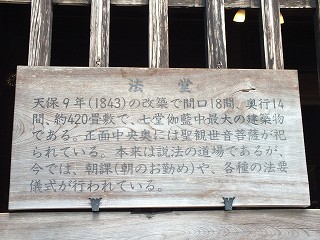 法堂
天保９年(1843)の改築で間口18間、奥行14
間、約420畳敷で、七堂伽藍中最大の建築物
である。正面中央奥には聖観世音菩薩が祀
られている。本来は説法の道場であるが、
今では、朝課(朝のお勤め)や、各種の法要
儀式が行われている。